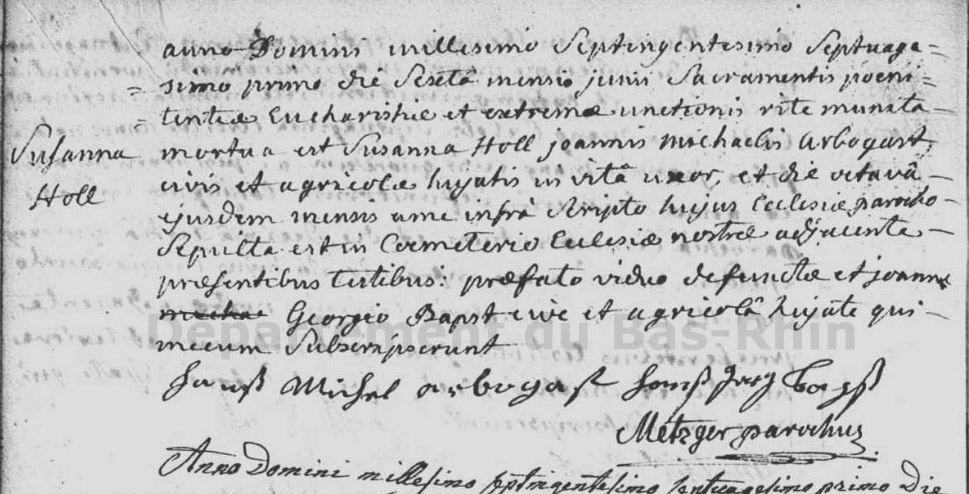 anno Domini millesimo Septingentesimo Septuage=
=simo primo die Sextâ mensis junii Sacramentis poeni=
=tentiæ Eucharistiæ et extremæ unctionis rite munita
Susanna Holl
mortua est Susanna Holl joannis michaelis arbogast,
civis et agricolæ hujatis in vitâ uxor, et die octavâ
ejusdem mensis a me infrà scripto hujus Ecclesiæ parocho
sepulta est in Coemeterio Ecclesiæ nostræ adjacente
præsentibus testibus: præfato viduo defunctæ et joanne
Georgio Bapst cive et agricolâ hujate qui
mecum Subscripserunt
hanß Michel arbogast hanß jerg bapst
Metzger parochus
Anno Domini millesimo septingentesimo septuagesimo primo Die
Département du Bas-Rhin